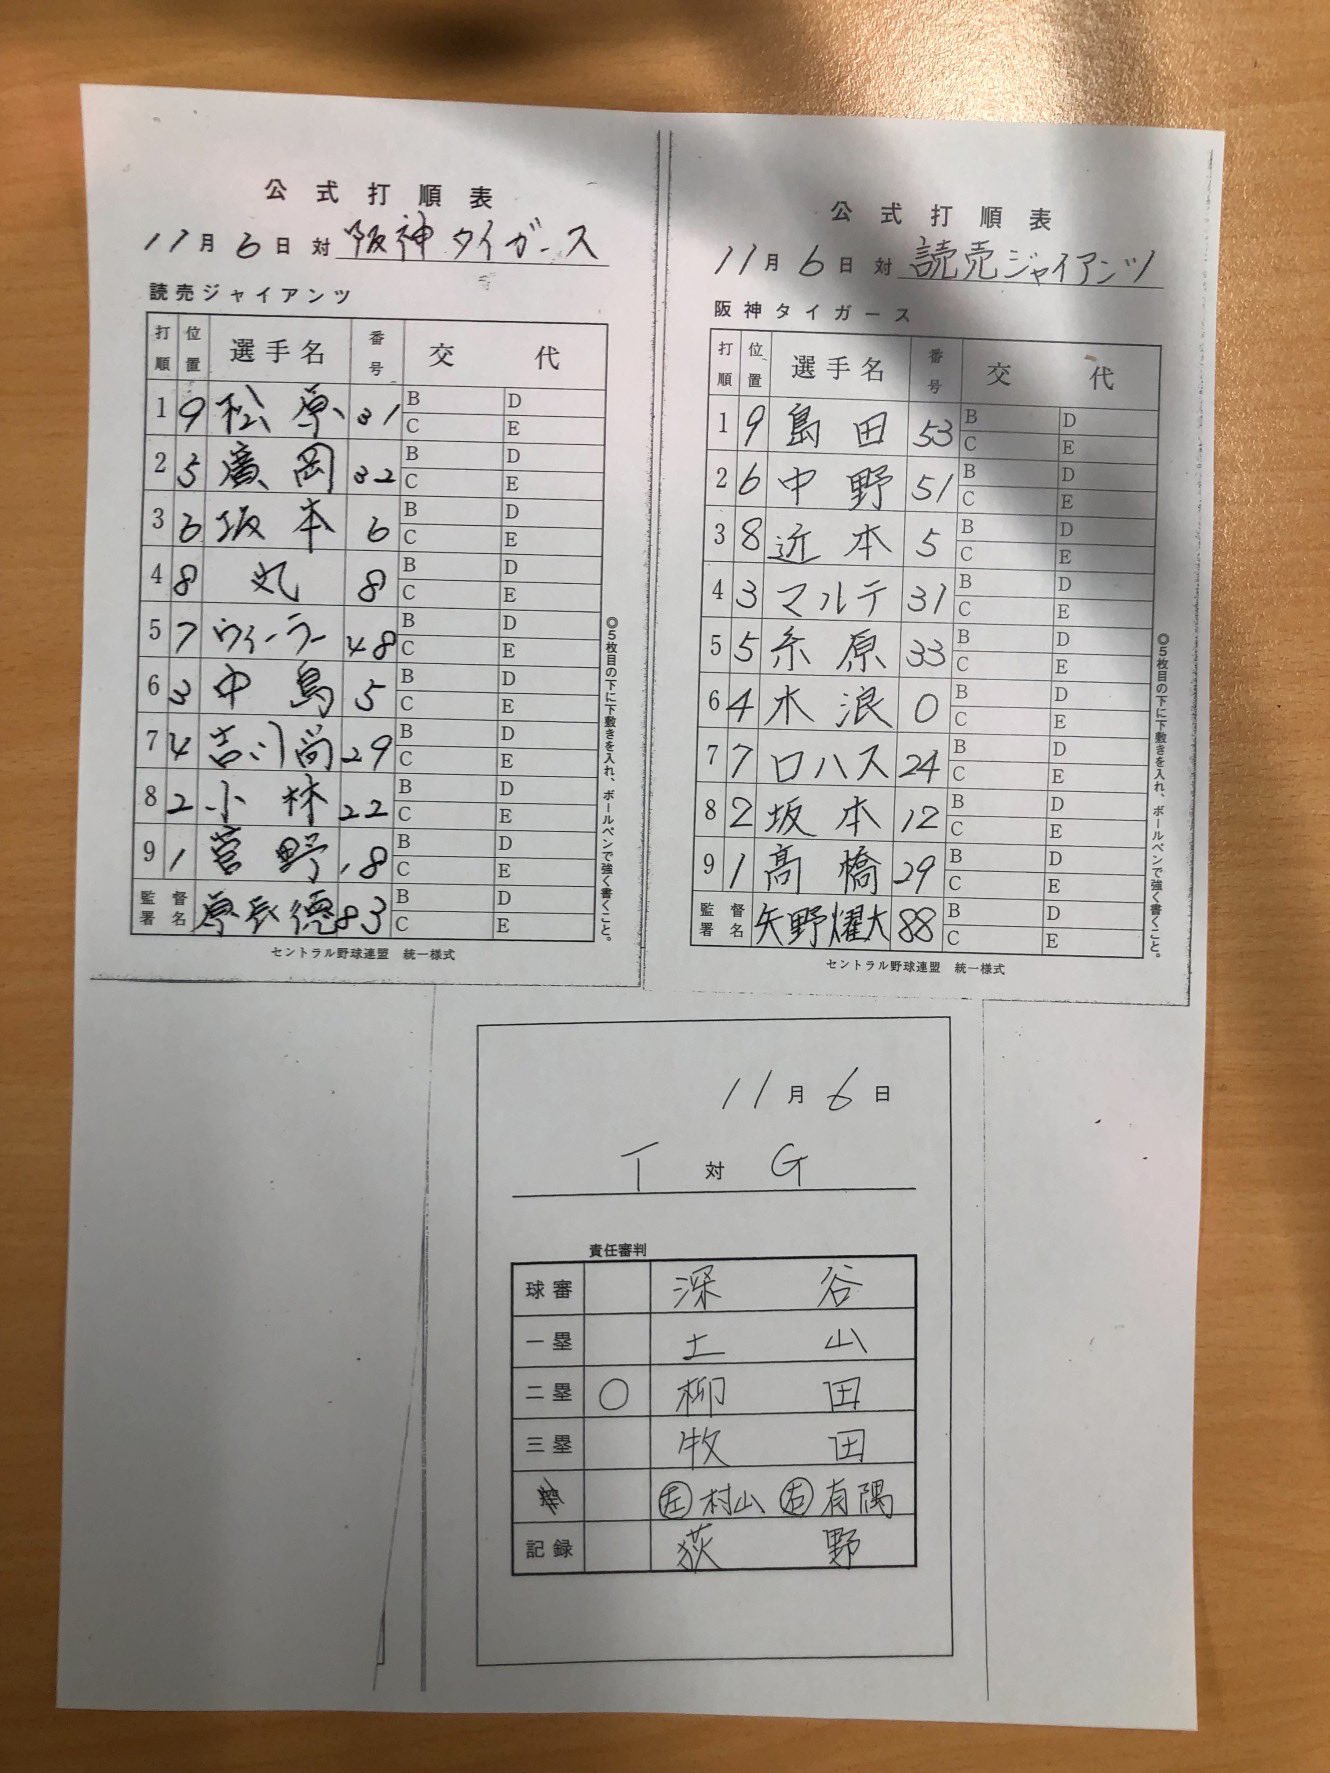 公式打順表
11月6日対 阪神タイガース
読売ジャイアンツ
打順 位置 選手名 番号 交代
1 9 松原 31 B D C E
2 5 廣岡 32 B D C E
3 6 坂本 6 B D C E
4 8 丸 8 B D C E
5 7 ウィーラー 48 B D C E
6 3 中島 5 B D C E
7 4 吉川尚 29 B D C E
8 2 小林 22 B D C E
9 1 菅野 18 B D C E
監督署名 原辰徳 83 B D C E
セントラル野球連盟 統一様式
◎5枚目の下に下敷きを入れ、ボールペンで強く書くこと。
公式打順表
11月6日対 読売ジャイアンツ
阪神タイガース
打順 位置 選手名 番号 交代
1 9 島田 53 B D C E
2 6 中野 51 B D C E
3 8 近本 5 B D C E
4 3 マルテ 31 B D C E
5 5 糸原 33 B D C E
6 4 木浪 0 B D C E
7 7 ロハス 24 B D C E
8 2 坂本 12 B D C E
9 1 高橋 29 B D C E
監督署名 矢野燿大 88 B D C E
セントラル野球連盟 統一様式
◎5枚目の下に下敷きを入れ、ボールペンで強く書くこと。
11月6日
T 対 G
責任審判
球審 深谷
一塁 土山
二塁 ○ 柳田
三塁 牧田
左 村山 右 有隅
記録 荻野